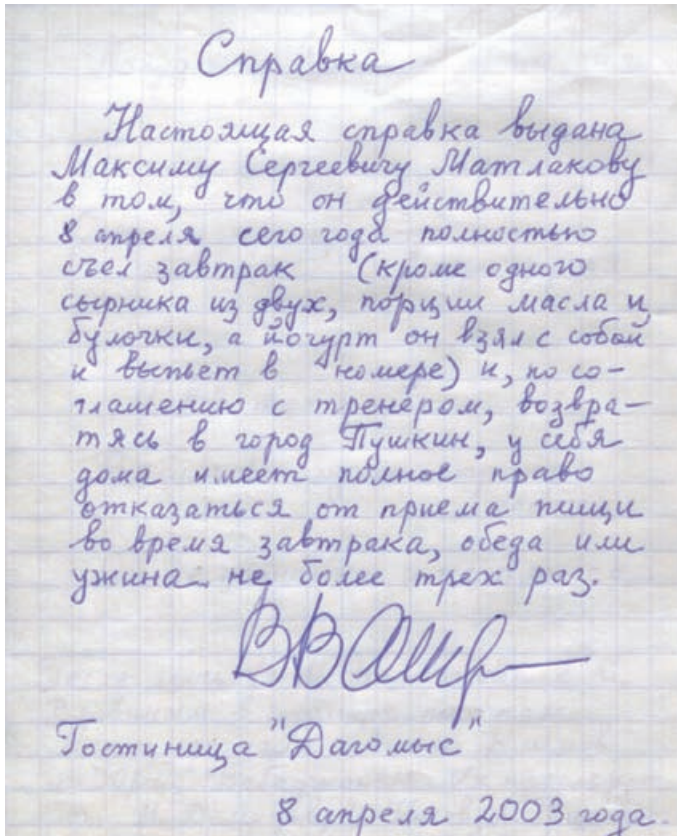 Справка
Настоящая справка выдана
Максиму Сергеевичу Матлакову
в том, что он действительно
8 апреля сего года полностью
съел завтрак (кроме одного
сырника из двух, порции масла и
булочки, а йогурт он взял с собой
и выпьет в номере) и, по со-
глашению с тренером, возвра-
тясь в город Пушкин, у себя
дома имеет полное право
отказаться от приема пищи
во время завтрака, обеда или
ужина не более трех раз.
Гостиница "Дагомыс"
8 апреля 2003 года.